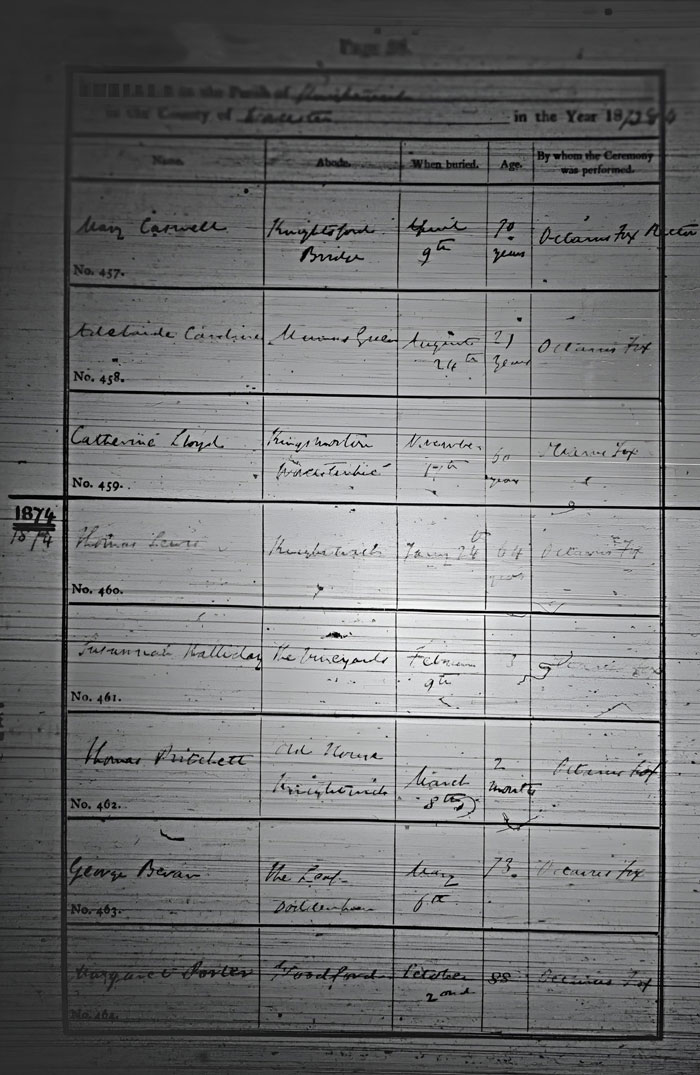 Page 58.
BURIALS in the Parish of Knightwick
in the County of Worcester in the Year 18
Name. Abode. When buried. Age. By whom the Ceremony
was performed.
Mary Caswell Knightsford April 70 Octavius Fox Rector
Bridge 9th years
No. 457.
Adelaide Caroline Green August 21 Octavius Fox
24th years
No. 458.
Catherine Lloyd November Octavius Fox
Worcestershire 17th years
No. 459.
1874
1874
Thomas Knightwick Jany 24th 64 Octavius Fox
years
No. 460.
Susannah Halliday The Vineyards February 3 Octavius Fox
9th
No. 461.
Thomas Pritchett Old House March 2 Octavius Fox
Knightwick 8th months
No. 462.
George Bevan The May 73. Octavius Fox
Doddenham 6th
No. 463.
Margaret Porter Woodford October 88 Octavius Fox
2nd
No. 464.